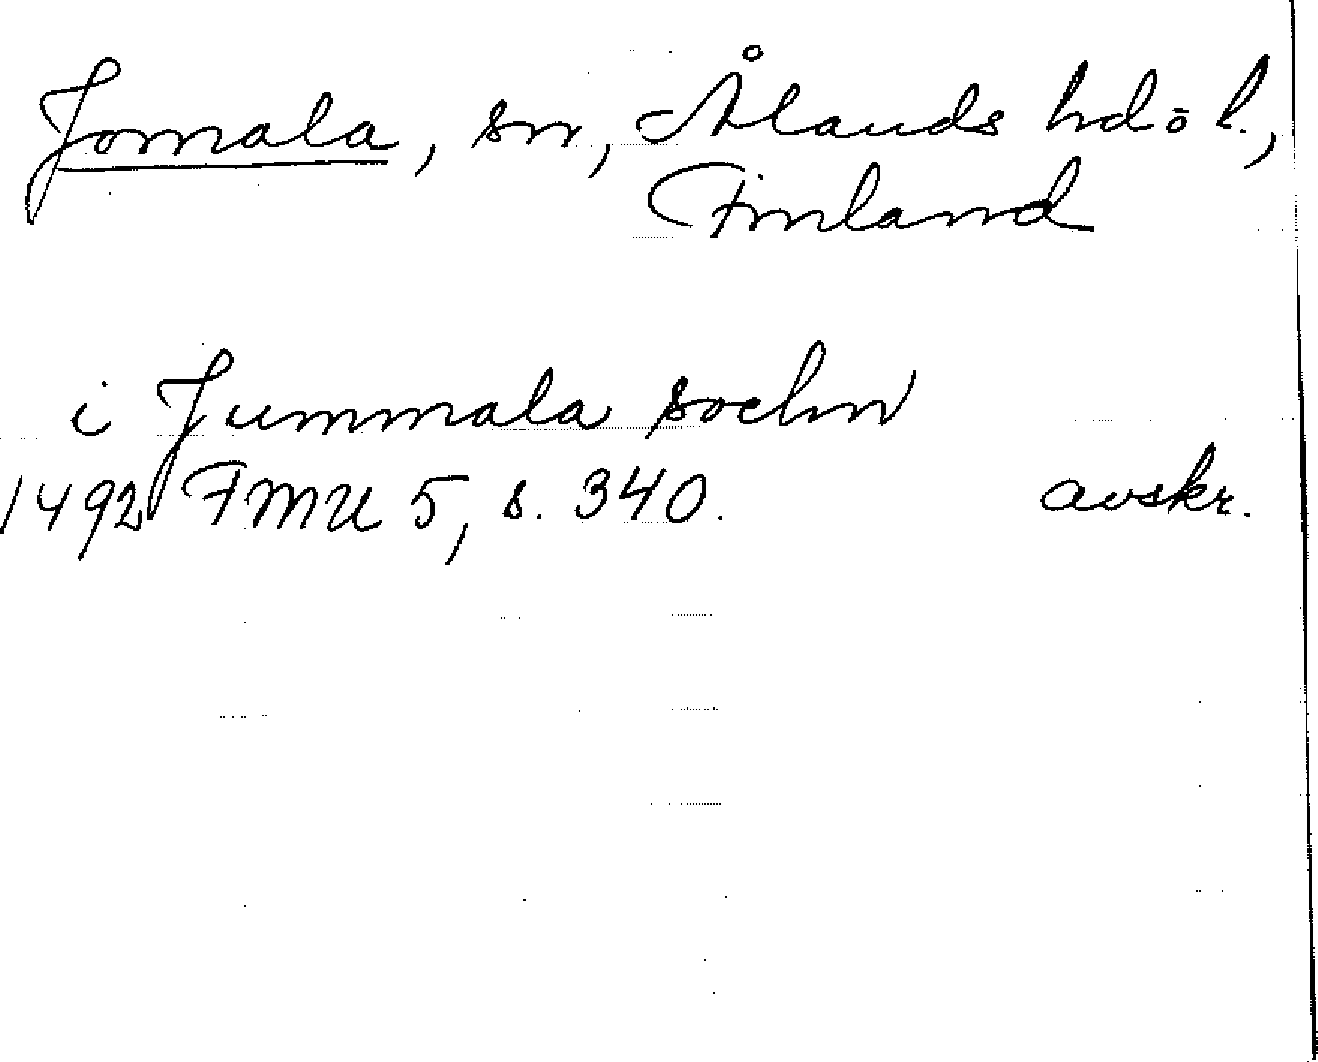 Jomala, sn, Ålands hd o l.,
Finland
i Jummala sochn
1492 FMU 5, s. 340. avskr.